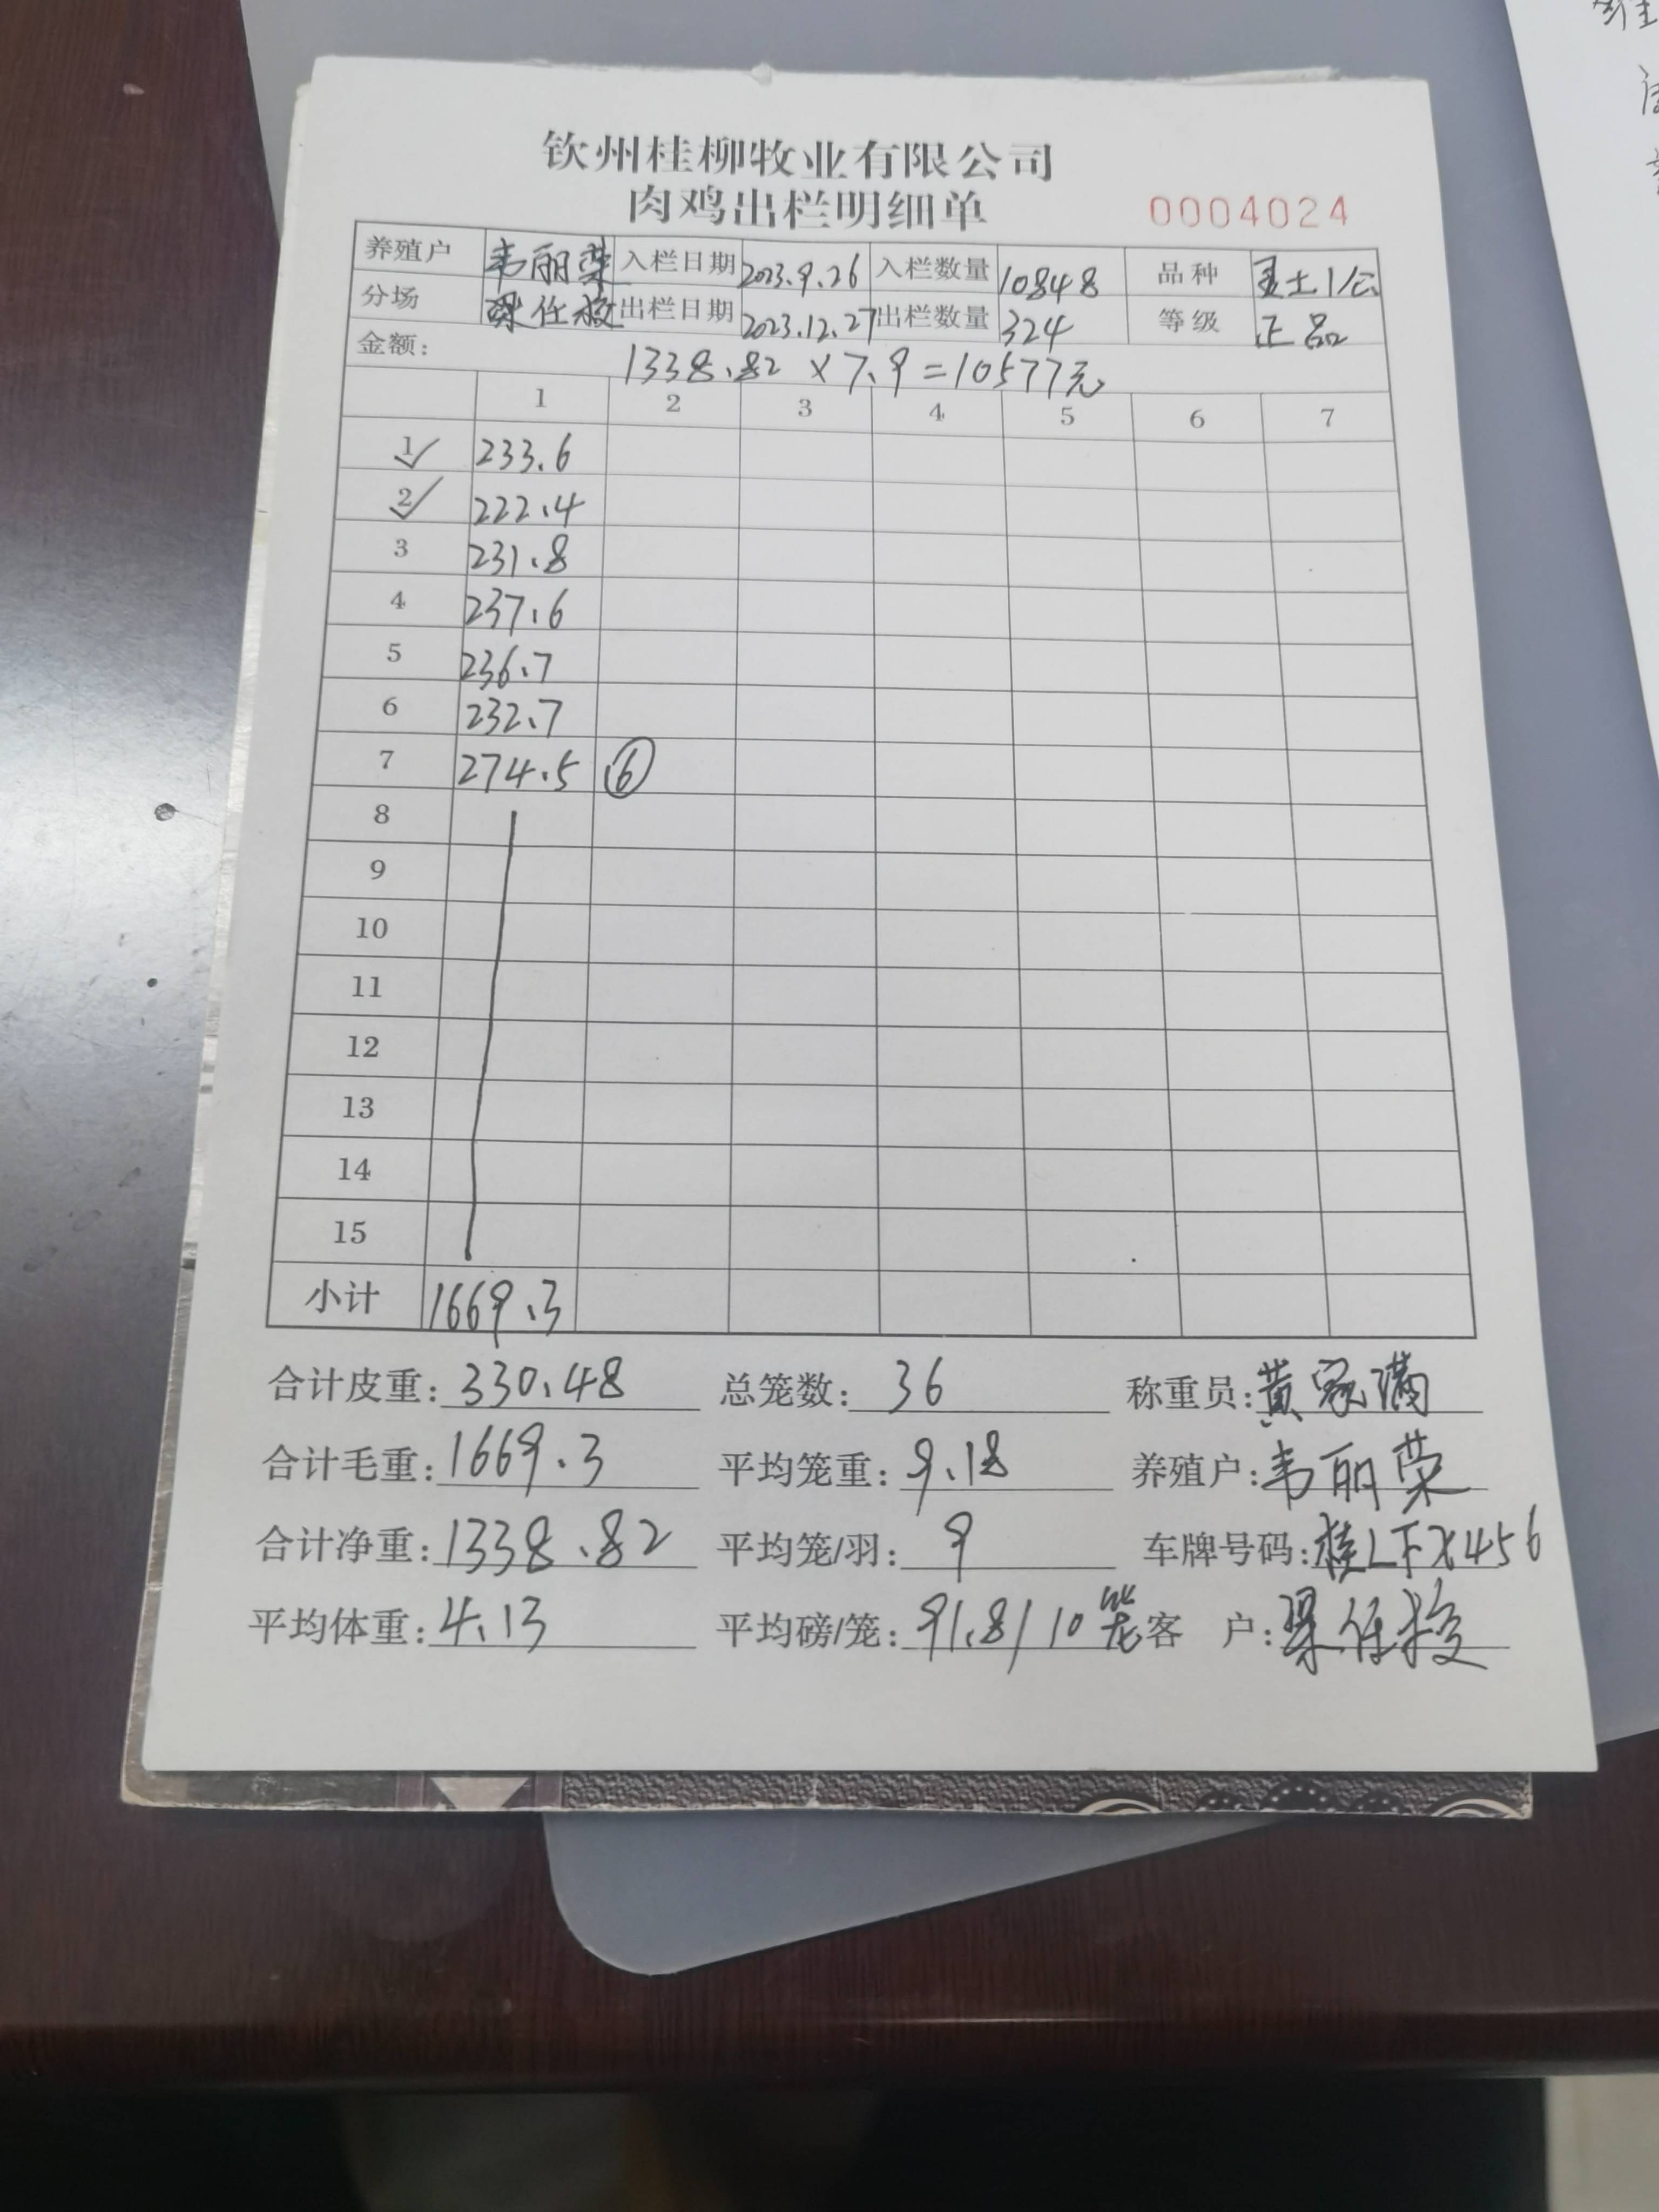 钦州桂柳牧业有限公司
肉鸡出栏明细单 0004024
养殖户 韦丽荣 入栏日期 2023.9.26 入栏数量 10848 品种 土1/公
分场 梁任 出栏日期 2023.12.27 出栏数量 324 等级 正品
金额: 1338.82 × 7.9 = 10577元
1 2 3 4 5 6 7
1 ✓ 233.6
2 ✓ 222.4
3 231.8
4 237.6
5 236.7
6 232.7
7 274.5 ⑥
8
9
10
11
12
13
14
15
小计 1669.3
合计皮重: 330.48 总笼数: 36 称重员: 黄家满
合计毛重: 1669.3 平均笼重: 9.18 养殖户: 韦丽荣
合计净重: 1338.82 平均笼/羽: 9 车牌号码: 桂LFX456
平均体重: 4.13 平均磅/笼: 91.8/10笼 客户: 梁任